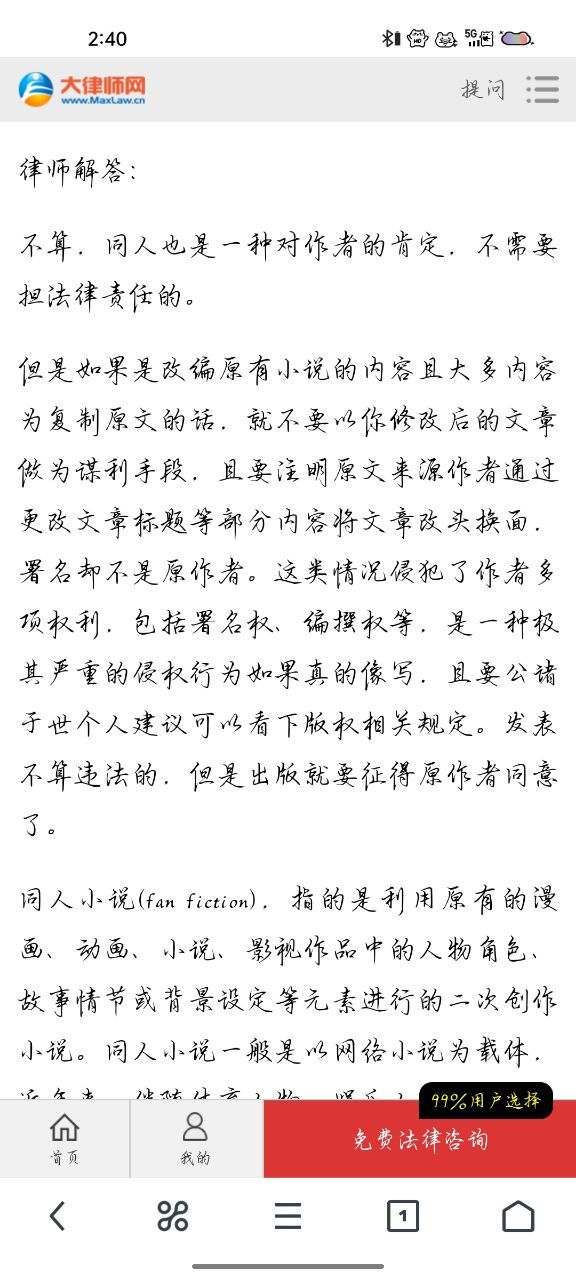 2:40
HD
5G
大律师网
www.MaxLaw.cn
提问
律师解答：
不算，同人也是一种对作者的肯定，不需要
担法律责任的。
但是如果是改编原有小说的内容且大多内容
为复制原文的话，就不要以你修改后的文章
做为谋利手段，且要注明原文来源作者通过
更改文章标题等部分内容将文章改头换面，
署名却不是原作者。这类情况侵犯了作者多
项权利，包括署名权、编撰权等，是一种极
其严重的侵权行为如果真的像写，且要公诸
于世个人建议可以看下版权相关规定。发表
不算违法的，但是出版就要征得原作者同意
了。
同人小说(fan fiction)，指的是利用原有的漫
画、动画、小说、影视作品中的人物角色、
故事情节或背景设定等元素进行的二次创作
小说。同人小说一般是以网络小说为载体，
99%用户选择
首页
我的
免费法律咨询
1